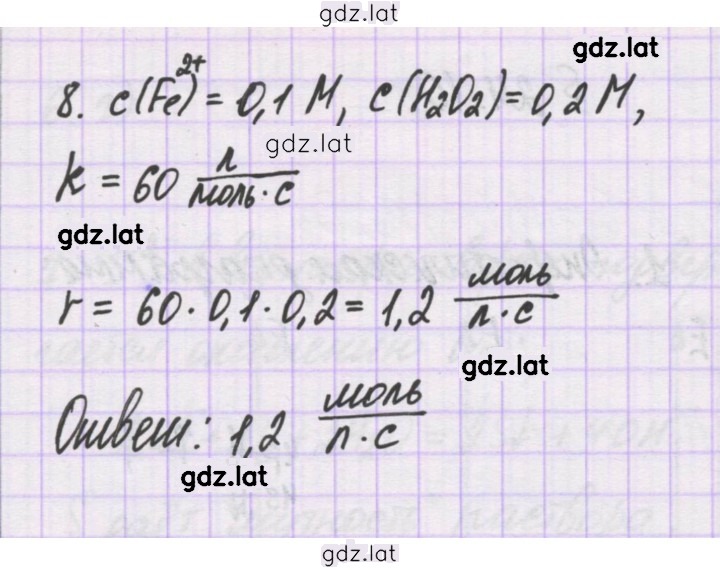 gdz.lat
gdz.lat
8. c(Fe²⁺) = 0,1 М, c(H₂O₂) = 0,2 М,
gdz.lat
k = 60 л/моль·с
gdz.lat
r = 60·0,1·0,2 = 1,2 моль/л·с
gdz.lat
Ответ: 1,2 моль/л·с
gdz.lat
gdz.lat